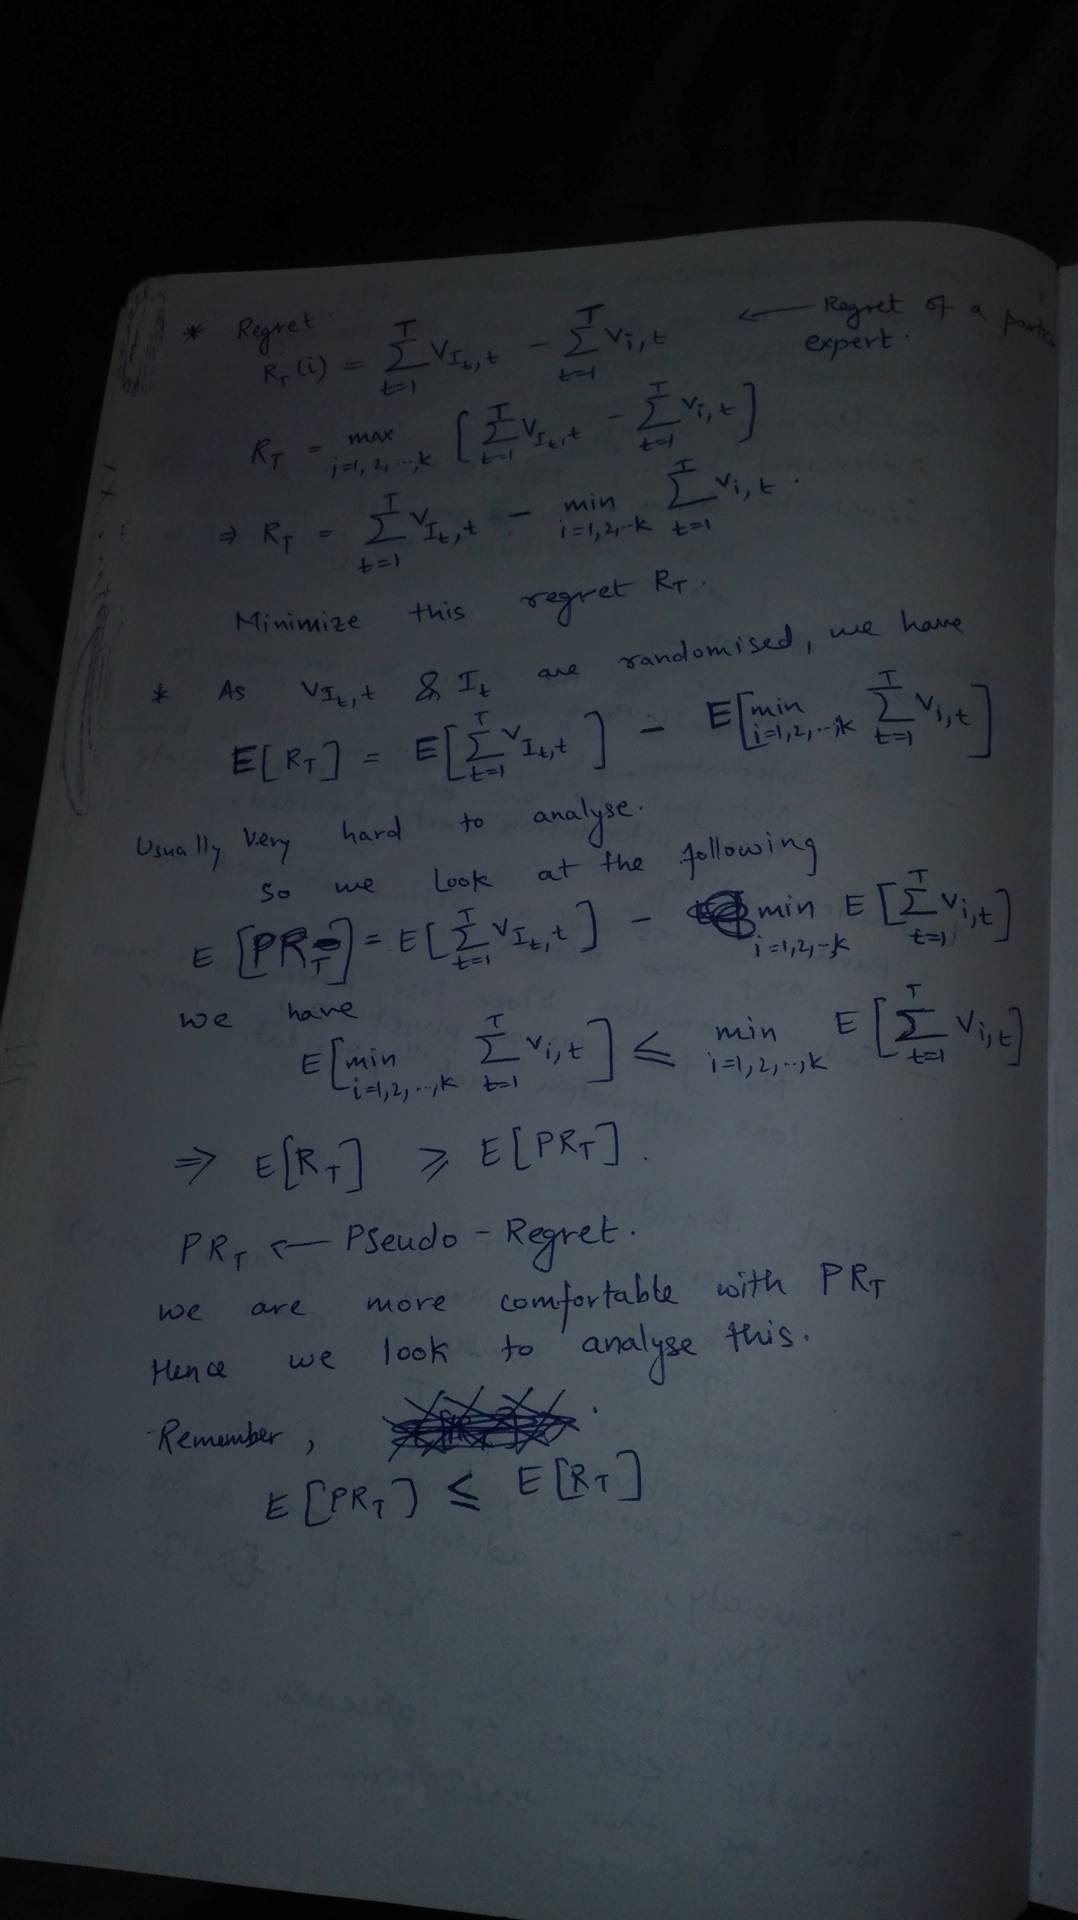 * Regret.
R_T(i) = Σ_{t=1}^{T} V_{I_t,t} − Σ_{t=1}^{T} V_{i,t} ← Regret of a
expert.
R_T = max_{i=1,2,...,K} [Σ_{t=1}^{T} V_{I_t,t} − Σ_{t=1}^{T} V_{i,t}]
⇒ R_T = Σ_{t=1}^{T} V_{I_t,t} − min_{i=1,2,..K} Σ_{t=1}^{T} V_{i,t}.
Minimize this regret R_T.
* As V_{I_t,t} & I_t are randomised, we have
E[R_T] = E[Σ_{t=1}^{T} V_{I_t,t}] − E[min_{i=1,2,..,K} Σ_{t=1}^{T} V_{i,t}]
Usually very hard to analyse.
So we look at the following
E[PR_T] = E[Σ_{t=1}^{T} V_{I_t,t}] − min_{i=1,2,..K} E[Σ_{t=1}^{T} V_{i,t}]
we have
E[min_{i=1,2,..,K} Σ_{t=1}^{T} V_{i,t}] ≤ min_{i=1,2,..,K} E[Σ_{t=1}^{T} V_{i,t}]
⇒ E[R_T] ≥ E[PR_T].
PR_T ← Pseudo-Regret.
we are more comfortable with PR_T
Hence we look to analyse this.
Remember,
E[PR_T] ≤ E[R_T]